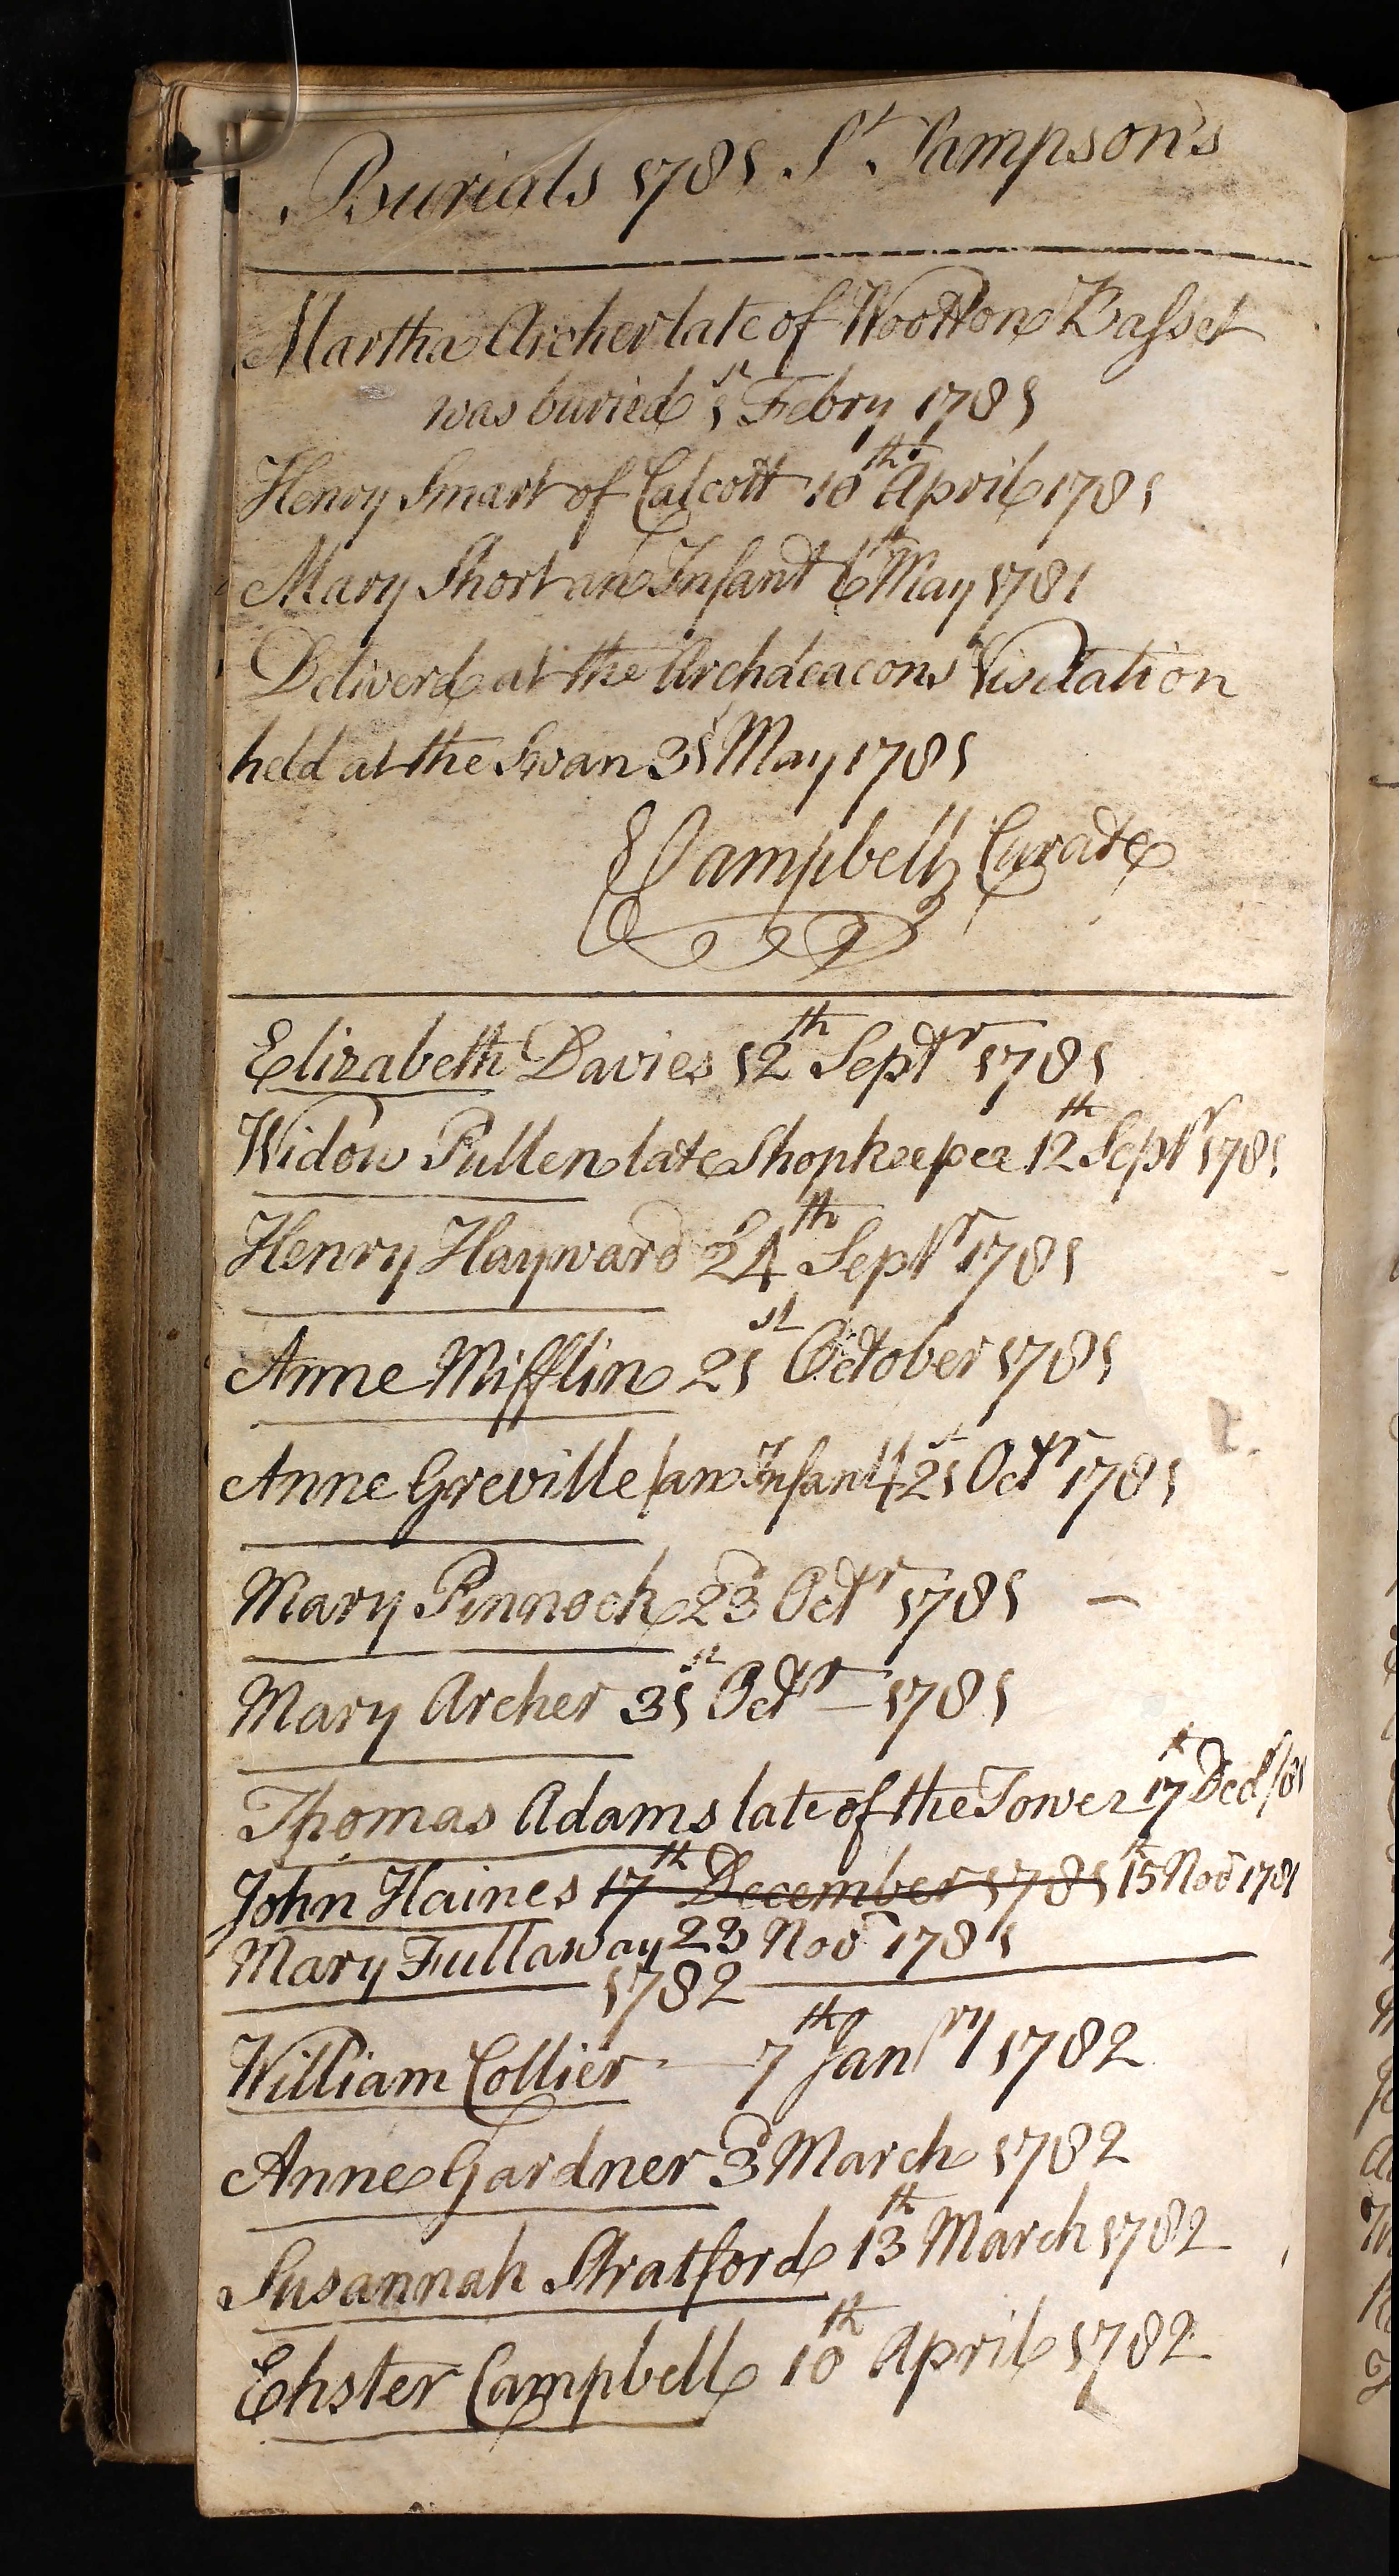 Burials 1781 St. Sampson's
Martha Archer late of Wootton Basset
was buried 1st Febry 1781
Henry Smart of Calcott 10th April 1781
Mary Short an Infant 6th May 1781
Deliverd at the Archdeacons Visitation
held at the Swan 31 May 1781
Campbell Curate
Elizabeth Davies 12th Septr 1781
Widow Pullen late Shopkeeper 12th Septr 1781
Henry Hayward 24th Septr 1781
Anne Mifflin 21st October 1781
Anne Greville /an Infant/ 21st Octr 1781
Mary Pinnock 23d Octr 1781 –
Mary Archer 31st Octr – 1781
Thomas Adams late of the Tower 17th Decr 1781
John Haines 17th December 1781 15th Novr 1781
Mary Fullaway 23 Novr 1781
1782
William Collier – 7th Janry 1782
Anne Gardner 3d March 1782
Susannah Stratford 13th March 1782
Ehster Campbell 10th April 1782